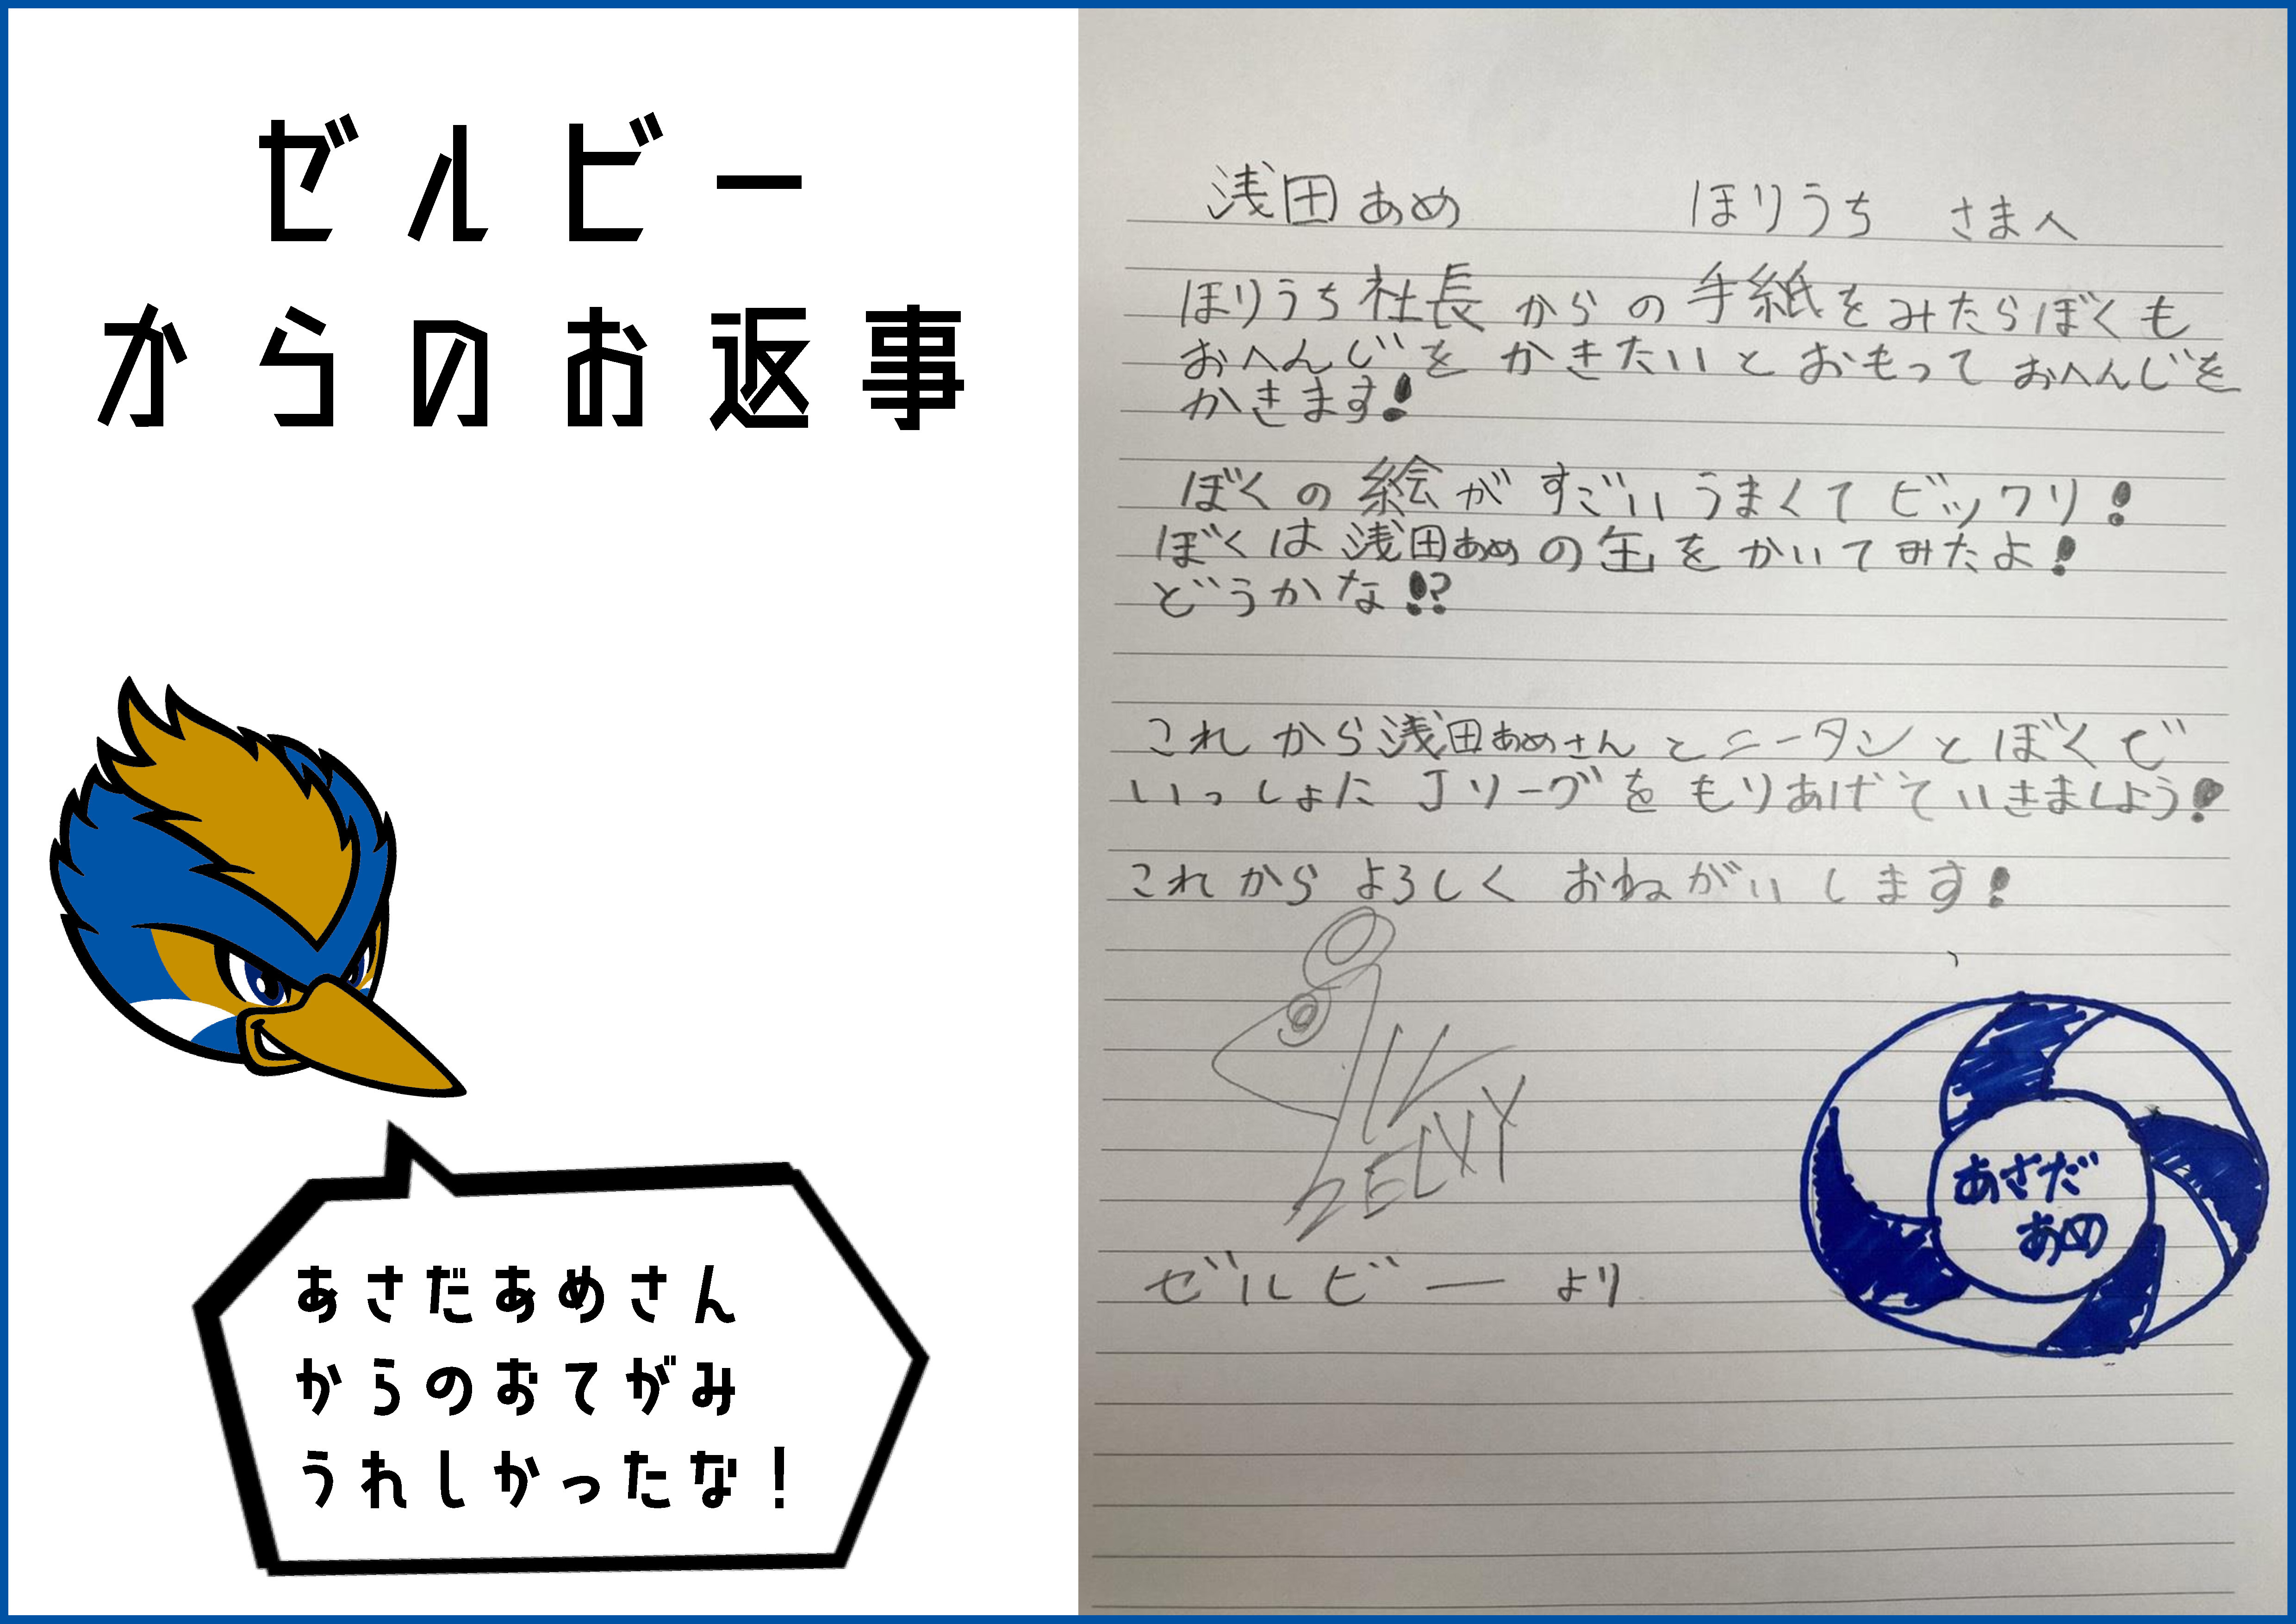 ゼルビー
からのお返事
あさだあめさん
からのおてがみ
うれしかったな！
浅田あめ ほりうち さまへ
ほりうち社長からの手紙をみたらぼくも
おへんじをかきたいとおもっておへんじを
かきます！
ぼくの絵がすごいうまくてビックリ！
ぼくは浅田あめの缶をかいてみたよ！
どうかな！？
これから浅田あめさんとニータンとぼくで
いっしょにJリーグをもりあげていきましょう！
これからよろしくおねがいします！
ZELVY
ゼルビーより
あさだ
あめ